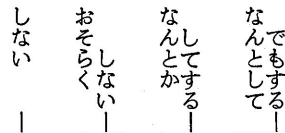 なんとしてでもする―
なんとかしてする―
おそらくしない―
しない―